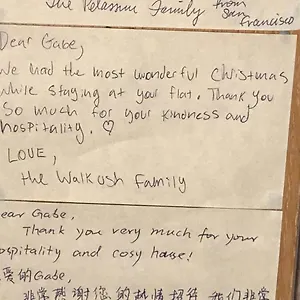 The Petassne Family from
San
Francisco
Dear Gabe,
We had the most wonderful Christmas
while staying at your flat. Thank you
so much for your kindness and
hospitality. ♡
LOVE,
the Walkush Family
ear Gabe,
Thank you very much for your
ospitality and cosy house!
爱的Gabe,
非常感谢您的热情招待 我们非常